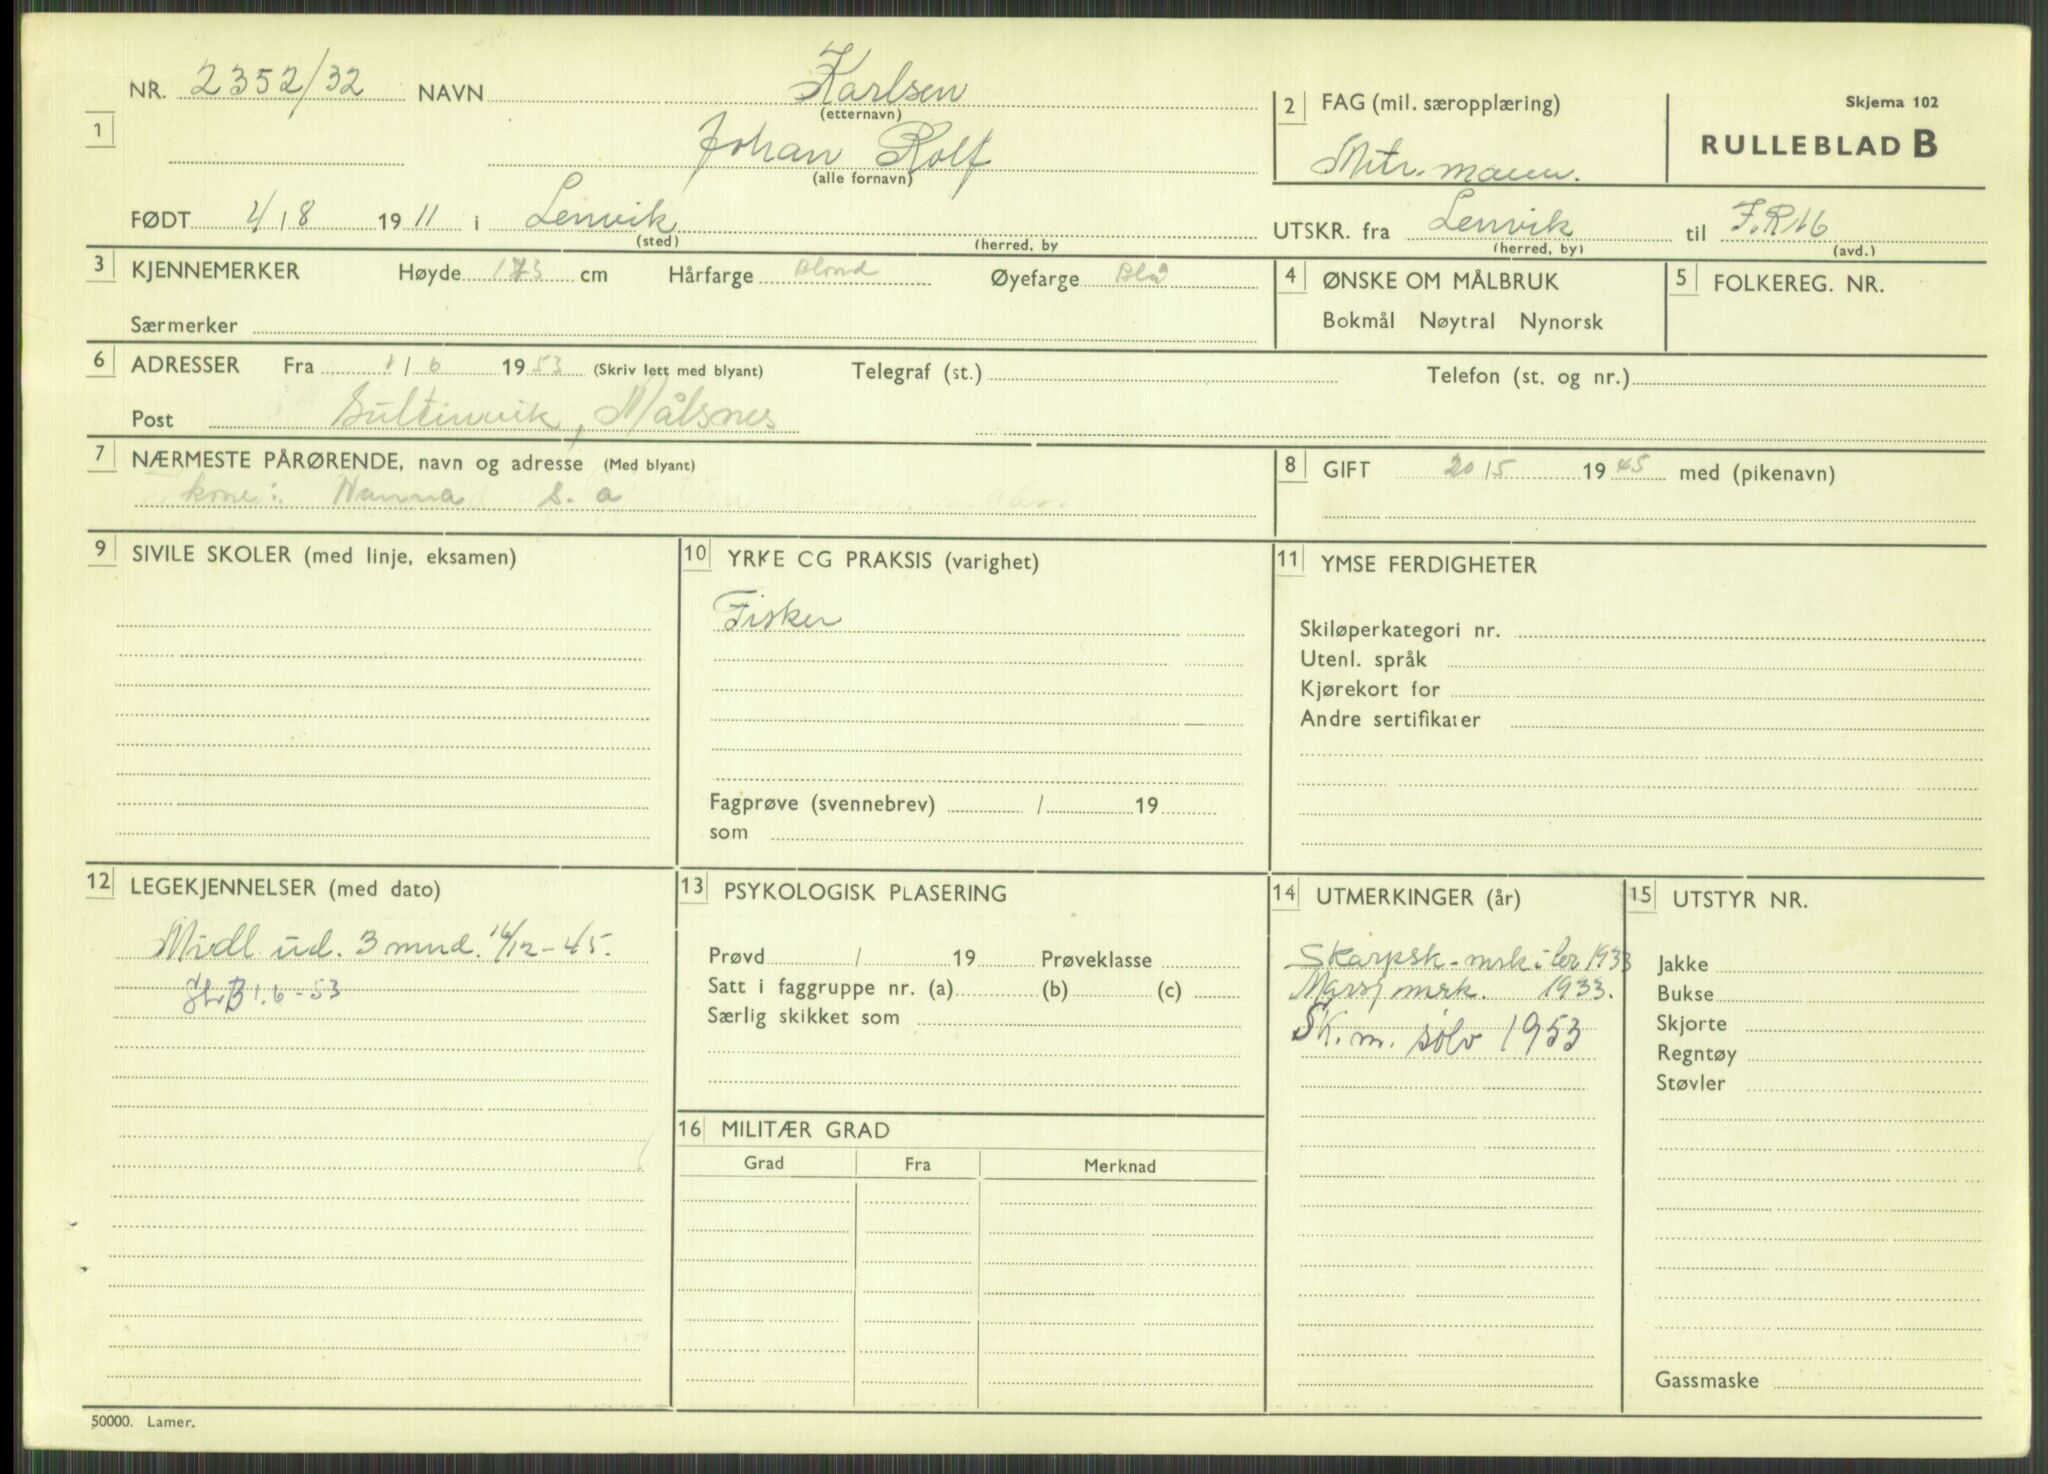 NR. 2352/32 NAVN Karlsen
(etternavn)
1 Johan Rolf
(alle fornavn)
2 FAG (mil. særopplæring)
Mitr. mann.
Skjema 102
RULLEBLAD B
FØDT 4/8 1911 i Lenvik
(sted) (herred, by
UTSKR. fra Lenvik til F.R16
(herred, by) (avd.)
3 KJENNEMERKER Høyde 173 cm Hårfarge Blond Øyefarge Blå
Særmerker
4 ØNSKE OM MÅLBRUK
Bokmål Nøytral Nynorsk
5 FOLKEREG. NR.
6 ADRESSER Fra 1/6 1953 (Skriv lett med blyant) Telegraf (st.) Telefon (st. og nr.)
Post Gultinvik, Målsnes
7 NÆRMESTE PÅRØRENDE, navn og adresse (Med blyant)
kone: Nanna s. a
8 GIFT 20/5 1945 med (pikenavn)
9 SIVILE SKOLER (med linje, eksamen)
10 YRKE CG PRAKSIS (varighet)
Fisker
Fagprøve (svennebrev) / 19
som
11 YMSE FERDIGHETER
Skiløperkategori nr.
Utenl. språk
Kjørekort for
Andre sertifikater
12 LEGEKJENNELSER (med dato)
Midl ud. 3 mnd. 14/12-45.
B 1.6-53
13 PSYKOLOGISK PLASERING
Prøvd / 19 Prøveklasse
Satt i faggruppe nr. (a) (b) (c)
Særlig skikket som
14 UTMERKINGER (år)
Skarpsk-mrk 1933
Marsj mrk. 1933.
SK. m. sølv 1953
15 UTSTYR NR.
Jakke
Bukse
Skjorte
Regntøy
Støvler
Gassmaske
16 MILITÆR GRAD
Grad Fra Merknad
50000. Lamer.